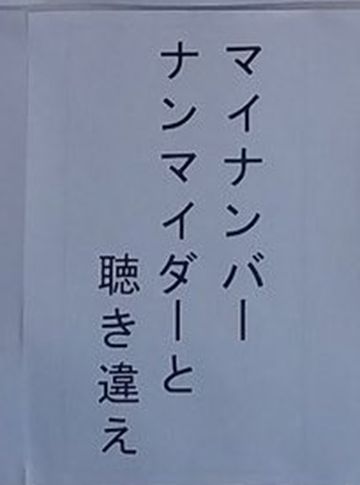 マイナンバー
ナンマイダーと
聴き違え